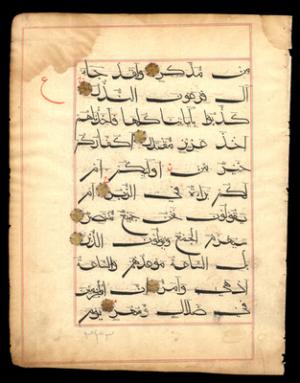 ع
من مدكر ولقد جاء
آل فرعون النذر
كذبوا بآياتنا كلها فأخذناهم
أخذ عزيز مقتدر أكفاركم
خير من أولئكم أم
لكم براءة في الزبر أم
يقولون نحن جميع منتصر
سيهزم الجمع ويولون الدبر
بل الساعة موعدهم والساعة
أدهى وأمر إن المجرمين
في ضلال وسعر يوم